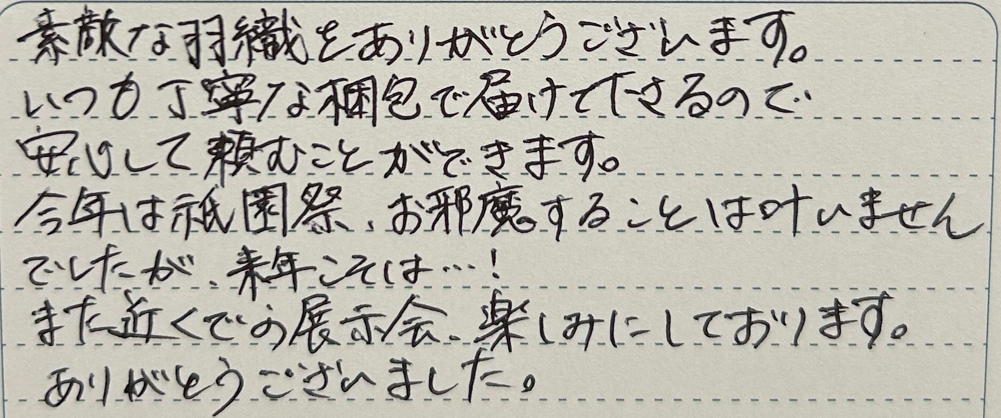 素敵な羽織をありがとうございます。
いつも丁寧な梱包で届けて下さるので
安心して頼むことができます。
今年は祇園祭、お邪魔することは叶いません
でしたが、来年こそは…!
また近くでの展示会、楽しみにしております。
ありがとうございました。